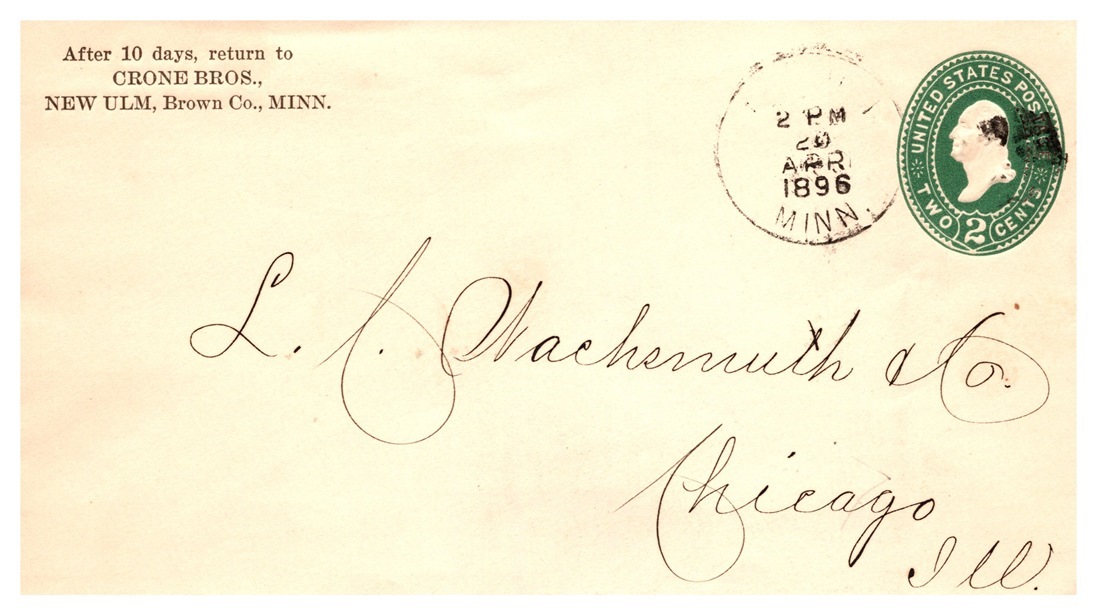 After 10 days, return to
CRONE BROS.,
NEW ULM, Brown Co., MINN.
2 PM
20
APR
1896
MINN.
UNITED STATES POS
TWO 2 CENTS
L. C. Wachsmuth & Co.
Chicago
Ill.